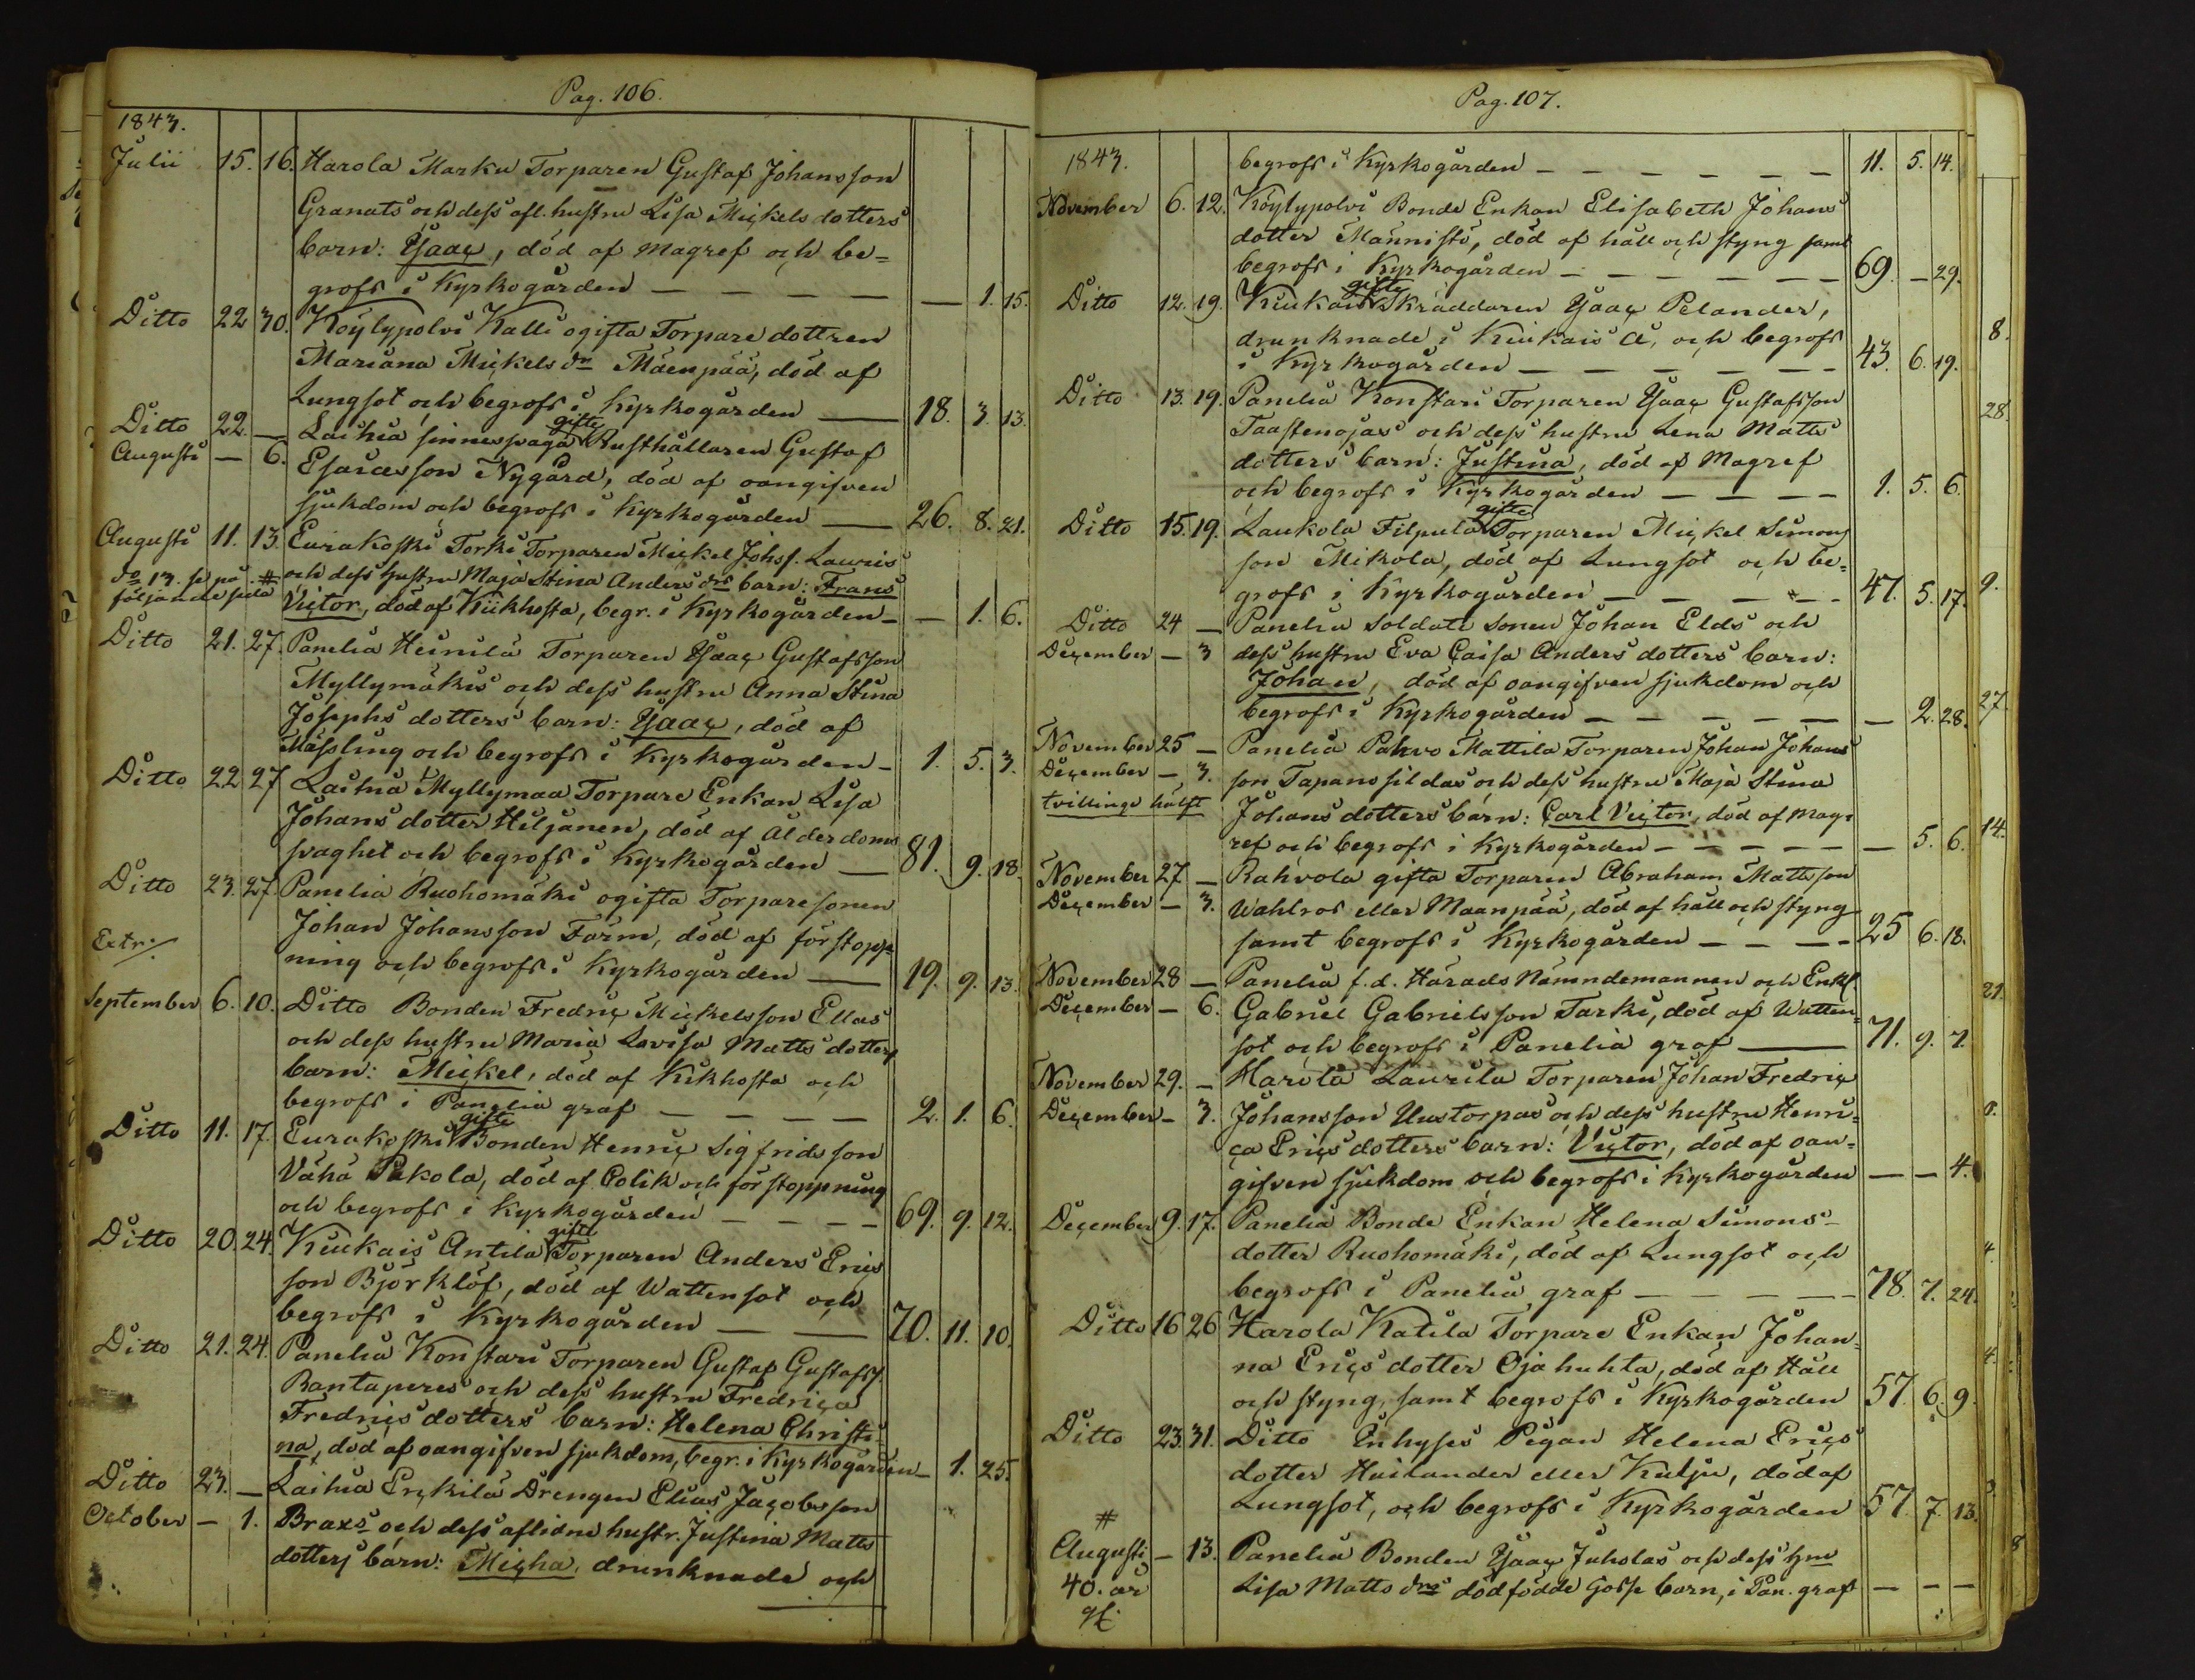 Pag. 106.
1843.
Julii 15. 16. Harola Marku Torparen Gustaf Johansson
Granats och dess afl. hustru Lisa Mickels dotters
barn: Isaac, död af Magref och be=
grofs i Kyrkogården — — — — — 1. 15.
Ditto 22 30. Köylypolvi Kalli ogifta Torpare dottren
Mariana Mickels dr Mäenpää, död af
Lungsot och begrofs i Kyrkogården — 18. 3. 13.
Ditto 22. — Laihia sinnessvaga gifte Rusthållaren Gustaf
Augusti — 6. Esaiasson Nygård, död af oangifven
sjukdom och begrofs i Kyrkogården — 26. 8. 21.
Augusti 11. 13. Eurakoski Torki Torparen Mickel Johss. Lauris
do 13. se på # och dess hustru Maja Stina Anders drs barn: Frans
följande sida Victor, död af Kikhosta, begr. i Kyrkogården — — 1. 6.
Ditto 21. 27. Panelia Heinilä Torparen Isaac Gustafsson
Myllymäkis och dess hustru Anna Stina
Josephs dotters barn: Isaac, död af
Mässling och begrofs i Kyrkogården — 1. 5. 3.
Ditto 22 27 Laihia Myllymaa Torpare Enkan Lisa
Johans dotter Hiljanen, död af Ålderdoms
svaghet och begrofs i Kyrkogården — 81. 9. 18.
Ditto 23. 27. Panelia Ruohomäki ogifta Torparesonen
Johan Johansson Farm, död af förstopp=
Extr:/.
ning och begrofs i Kyrkogården — 19. 9. 13.
September 6. 10. Ditto Bonden Fredric Mickelsson Ellas
och dess hustru Maria Lovisa Matts dotters
barn: Mickel, död af Kikhosta och
begrofs i Panelia graf — — — — 2. 1. 6.
Ditto 11. 17. Eurakoski gifte Bonden Henric Sigfridsson
Vähä Pukola, död af Colik och förstoppning
och begrofs i Kyrkogården — — — — 69. 9. 12.
Ditto 20. 24. Kiukais Antila gifte Torparen Anders Erics
son Björklöf, död af Wattensot och
begrofs i Kyrkogården — — 70. 11. 10.
Ditto 21. 24. Panelia Konstari Torparen Gustaf Gustafss.
Rantaperes och dess hustru Fredrica
Fredrics dotters barn: Helena Christi=
na, död af oangifven sjukdom, begr. i Kyrkogården — 1. 25.
Ditto 23. — Laihia Erckilä Drengen Elias Jacobsson
October — 1. Braxs och dess aflidne hustr. Justina Matts
dotters barn: Micha, drunknade och
Pag. 107.
1843. begrofs i Kyrkogården — — — — — — 11. 5. 14.
November 6. 12. Köylypolvi Bonde Enkan Elisabeth Johans
dotter Männistö, död af håll och styng samt
begrofs i Kyrkogården — — — — — — 69. — 29.
Ditto 12. 19. Kiukais gifte Skräddaren Isaac Pelander,
drunknade i Kiukais Å, och begrofs
i Kyrkogården — — — — — — 43. 6. 19.
Ditto 13. 19. Panelia Konstari Torparen Isaac Gustafsson
Taastenojas och dess hustru Lena Matts
dotters barn: Justina, död af Magref
och begrofs i Kyrkogården — — — — 1. 5. 6.
Ditto 15. 19. Laukola Filpula gifte Torparen Mickel Simons
son Mikola, död af Lungsot och be=
grofs i Kyrkogården — — — — — 47. 5. 17.
Ditto 24 — Panelia Soldate sonen Johan Elds och
December — 3 dess hustru Eva Caisa Anders dotters barn:
Johan, död af oangifven sjukdom och
begrofs i Kyrkogården — — — — — — 2. 28.
November 25 — Panelia Pahvo Mattila Torparen Johan Johans
December — 3. son Tapanossildas och dess hustru Maja Stina
tvillinge hälft Johans dotters barn: Carl Victor, död af Mag=
ref och begrofs i Kyrkogården — — — — — — 5. 6.
November 27 — Rahvola gifta Torparen Abraham Mattsson
December — 3. Wahlros eller Maanpää, död af håll och styng
samt begrofs i Kyrkogården — — — — 25 6. 18.
November 28 — Panelia f.d. Härads Nämndemannen och Enkl.
December — 6. Gabriel Gabrielsson Tarki, död af Watten=
sot och begrofs i Panelia graf — 71. 9. 7.
November 29. — Harola Laurila Torparen Johan Fredric
December — 3. Johansson Uustorpas och dess hustru Henri=
ca Erics dotters barn: Victor, död af oan=
gifven sjukdom och begrofs i Kyrkogården — — 4.
December 9. 17. Panelia Bonde Enkan Helena Simons=
dotter Ruohomäki, död af Lungsot och
begrofs i Panelia graf — — — — — 78. 7. 24.
Ditto 16 26 Harola Katila Torpare Enkan Johan=
na Erics dotter Ojahuhta, död af Håll
och styng, samt begrofs i Kyrkogården 57. 6. 9.
Ditto 23. 31. Ditto Inhyses Pigan Helena Erics
dotter Hailander eller Kulju, död af
Lungsot, och begrofs i Kyrkogården 57. 7. 13.
#
Augusti — 13. Panelia Bonden Isaac Juholas och dess hru
40. år Lisa Matts drs dödfödde Gosse barn, i Pan. graf — — —
gl.
8.
28.
9.
27.
14.
21.
4.
4.
8